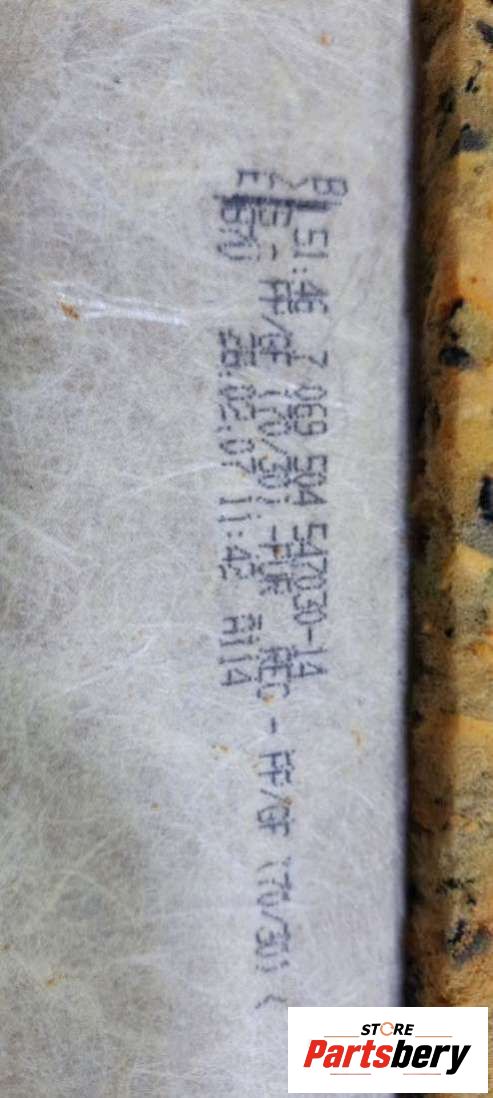 51:46 7 069 504 547030-14
FF/GF (70/30) -PUR REC - FF/GF (70/30) <
28.02.07 11:42 A114
STORE
Partsbery